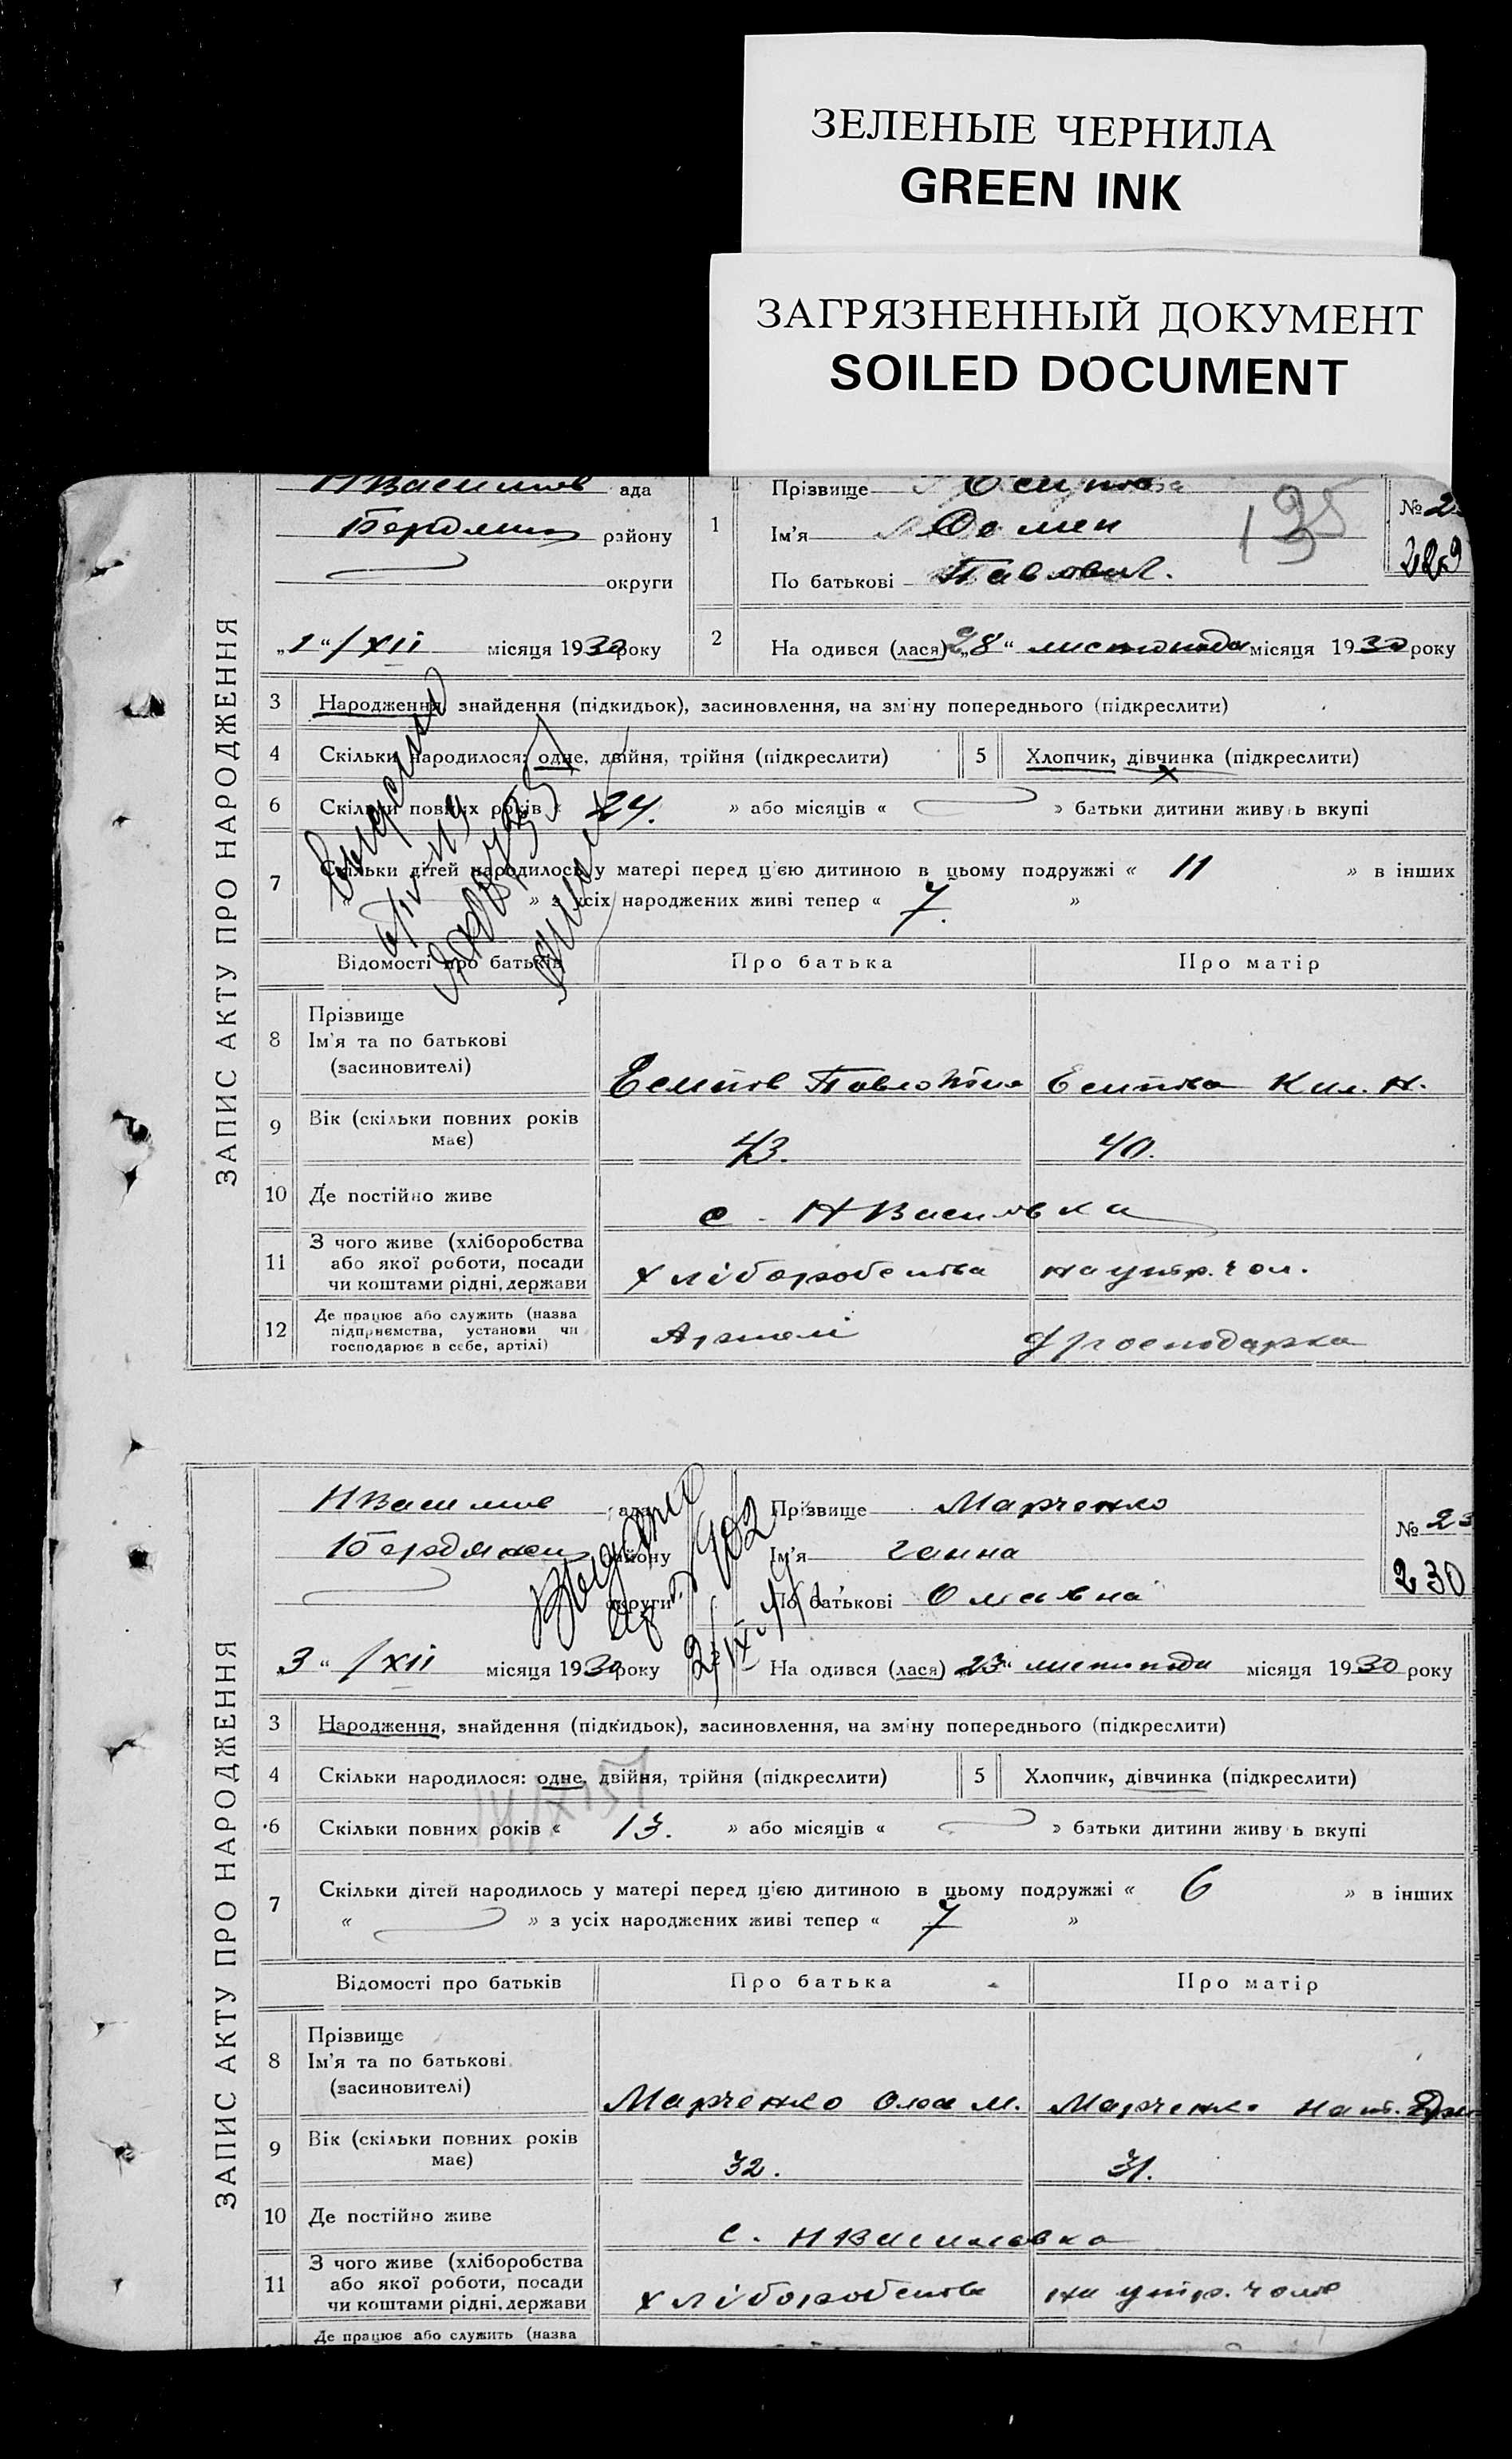 ЗЕЛЕНЫЕ ЧЕРНИЛА
GREEN INK
ЗАГРЯЗНЕННЫЙ ДОКУМЕНТ
SOILED DOCUMENT
ЗАПИС АКТУ ПРО НАРОДЖЕННЯ
НВасилів ада
району
округи
„1“/XII місяця 1930 року
1
Прізвище
Ім'я
По батькові Павлович.
135
№ 2
229
2 На одився (лася) „28“ листопада місяця 1930 року
3 Народження, знайдення (підкидьок), засиновлення, на зміну попереднього (підкреслити)
4 Скільки народилося: одне, двійня, трійня (підкреслити) 5 Хлопчик, дівчинка (підкреслити)
6 Скільки повних років « 24. » або місяців « » батьки дитини живуть вкупі
7 Скільки дітей народилось у матері перед цією дитиною в цьому подружжі « 11 » в інших
« » з усіх народжених живі тепер « 7. »
Відомості про батьків Про батька Про матір
8 Прізвище
Ім'я та по батькові
(засиновителі)
Есипов Павло Есипова Кил. Н.
9 Вік (скільки повних років має) 43. 40.
10 Де постійно живе с. НВасиловка
11 З чого живе (хліборобства
або якої роботи, посади
чи коштами рідні, держави
хліборобства на утр. чол.
12 Де працює або служить (назва
підприємства, установи чи
господарює в себе, артілі)
Артілі господарка
ЗАПИС АКТУ ПРО НАРОДЖЕННЯ
НВасилів ада
району
округи
„3“/XII місяця 1930 року
Прізвище Марченко
Ім'я Ганна
По батькові Омельвна
№ 23
230
На одився (лася) „23“ листопада місяця 1930 року
3 Народження, знайдення (підкидьок), засиновлення, на зміну попереднього (підкреслити)
4 Скільки народилося: одне, двійня, трійня (підкреслити) 5 Хлопчик, дівчинка (підкреслити)
6 Скільки повних років « 13. » або місяців « » батьки дитини живуть вкупі
7 Скільки дітей народилось у матері перед цією дитиною в цьому подружжі « 6 » в інших
« » з усіх народжених живі тепер « 7 »
Відомості про батьків Про батька Про матір
8 Прізвище
Ім'я та по батькові
(засиновителі)
Марченко М. Марченко
9 Вік (скільки повних років має) 32. 31.
10 Де постійно живе с. НВасиловка
11 З чого живе (хліборобства
або якої роботи, посади
чи коштами рідні, держави
хліборобства на утр. чолов
Де працює або служить (назва